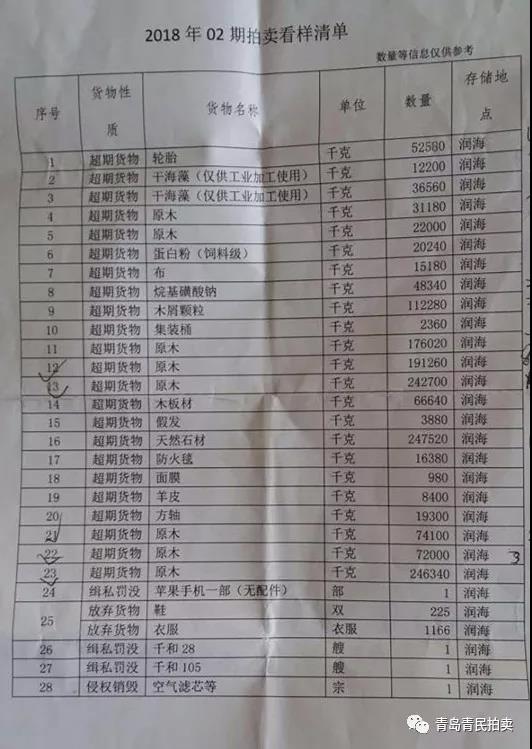 2018 年 02 期拍卖看样清单
数量等信息仅供参考
序号 货物性质 货物名称 单位 数量 存储地点
1 超期货物 轮胎 千克 52580 润海
2 超期货物 干海藻（仅供工业加工使用） 千克 12200 润海
3 超期货物 干海藻（仅供工业加工使用） 千克 36560 润海
4 超期货物 原木 千克 31180 润海
5 超期货物 原木 千克 22000 润海
6 超期货物 蛋白粉（饲料级） 千克 20240 润海
7 超期货物 布 千克 15180 润海
8 超期货物 烷基磺酸钠 千克 48340 润海
9 超期货物 木屑颗粒 千克 112280 润海
10 超期货物 集装桶 千克 2360 润海
11 超期货物 原木 千克 176020 润海
12 超期货物 原木 千克 191260 润海
13 超期货物 原木 千克 242700 润海
14 超期货物 木板材 千克 66640 润海
15 超期货物 假发 千克 3880 润海
16 超期货物 天然石材 千克 247520 润海
17 超期货物 防火毯 千克 16380 润海
18 超期货物 面膜 千克 980 润海
19 超期货物 羊皮 千克 8400 润海
20 超期货物 方轴 千克 19300 润海
21 超期货物 原木 千克 74100 润海
22 超期货物 原木 千克 72000 润海 3
23 超期货物 原木 千克 246340 润海
24 缉私罚没 苹果手机一部（无配件） 部 1 润海
25 放弃货物 鞋 双 225 润海
放弃货物 衣服 衣服 1166 润海
26 缉私罚没 千和 28 艘 1 润海
27 缉私罚没 千和 105 艘 1 润海
28 侵权销毁 空气滤芯等 宗 1 润海
青岛青民拍卖